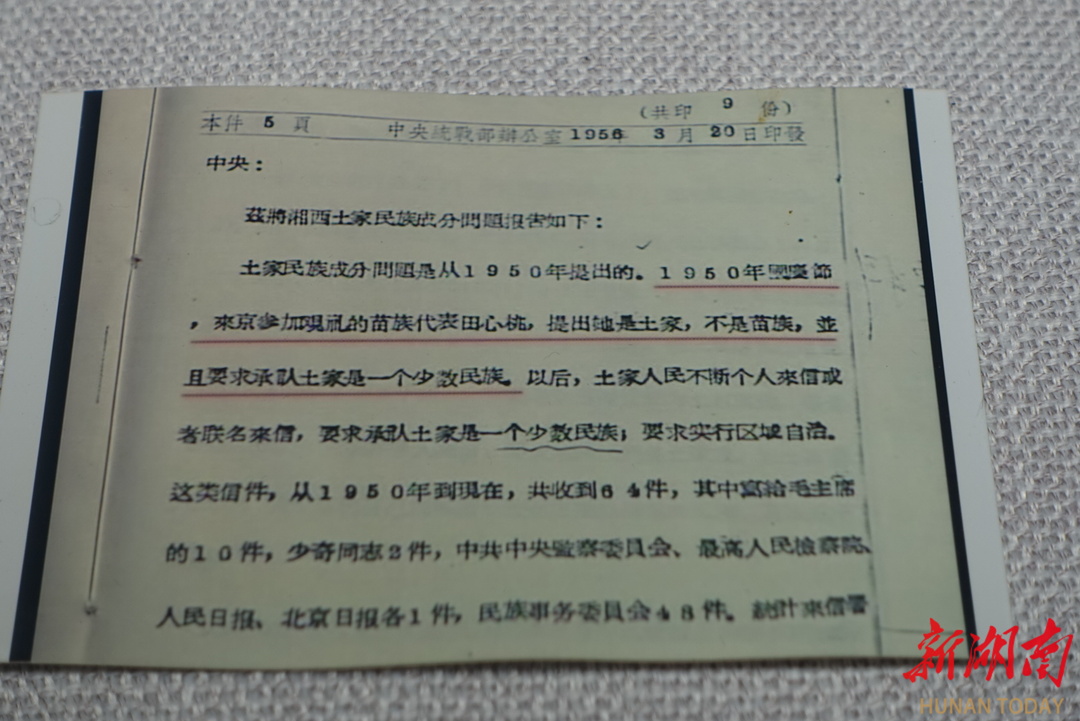 (共印 9 份)
本件 5 頁 中央統戰部辦公室1956年 3月 20日印發
中央：
茲將湘西土家民族成分問題报告如下：
土家民族成分問題是从1950年提出的。1950年國慶節
，來京参加观礼的苗族代表田心桃，提出她是土家，不是苗族，並
且要求承認土家是一个少数民族。以后，土家人民不断个人來信或
者联名來信，要求承认土家是一个少数民族；要求实行区域自治。
这类信件，从1950年到現在，共收到64件，其中寫給毛主席
的10件，少奇同志2件，中共中央監察委員会、最高人民檢察院、
人民日报、北京日报各1件，民族事务委員会48件。統計來信署
新湖南
HUNAN TODAY